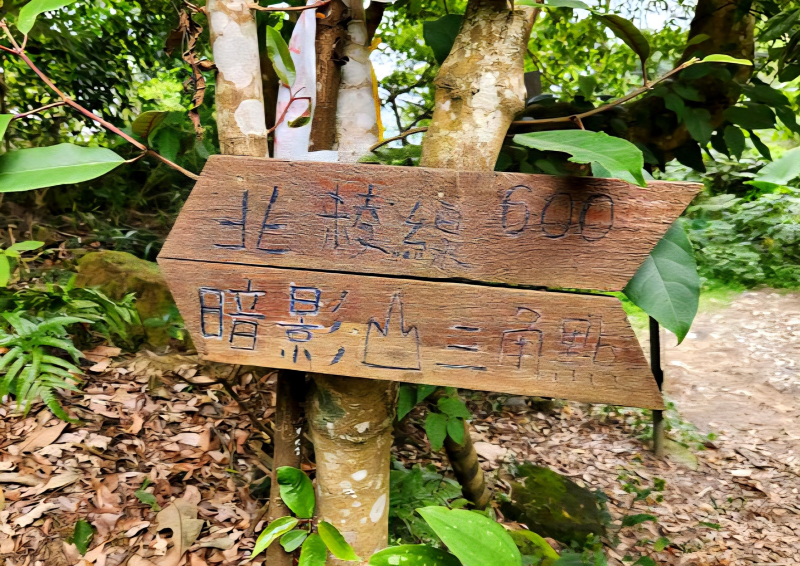 北棱線 600
暗影山二角點